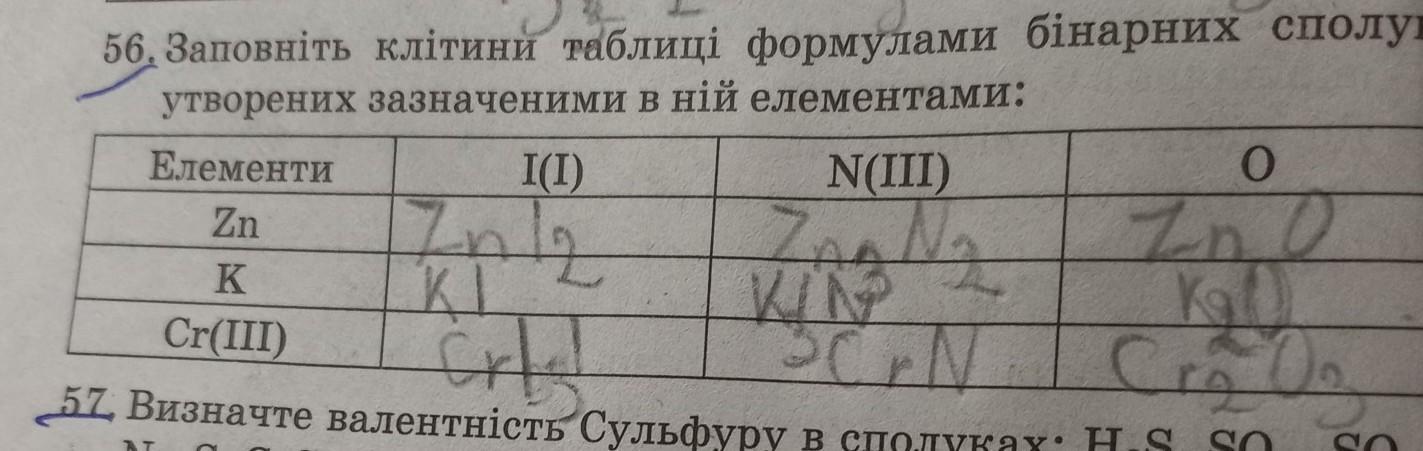 56. Заповніть клітини таблиці формулами бінарних сполу
утворених зазначеними в ній елементами:
Елементи I(I) N(III) O
Zn ZnI2 ZnO
K KI K2O
Cr(III) CrN Cr2O3
57. Визначте валентність Сульфуру в сполуках: H₂S, SO